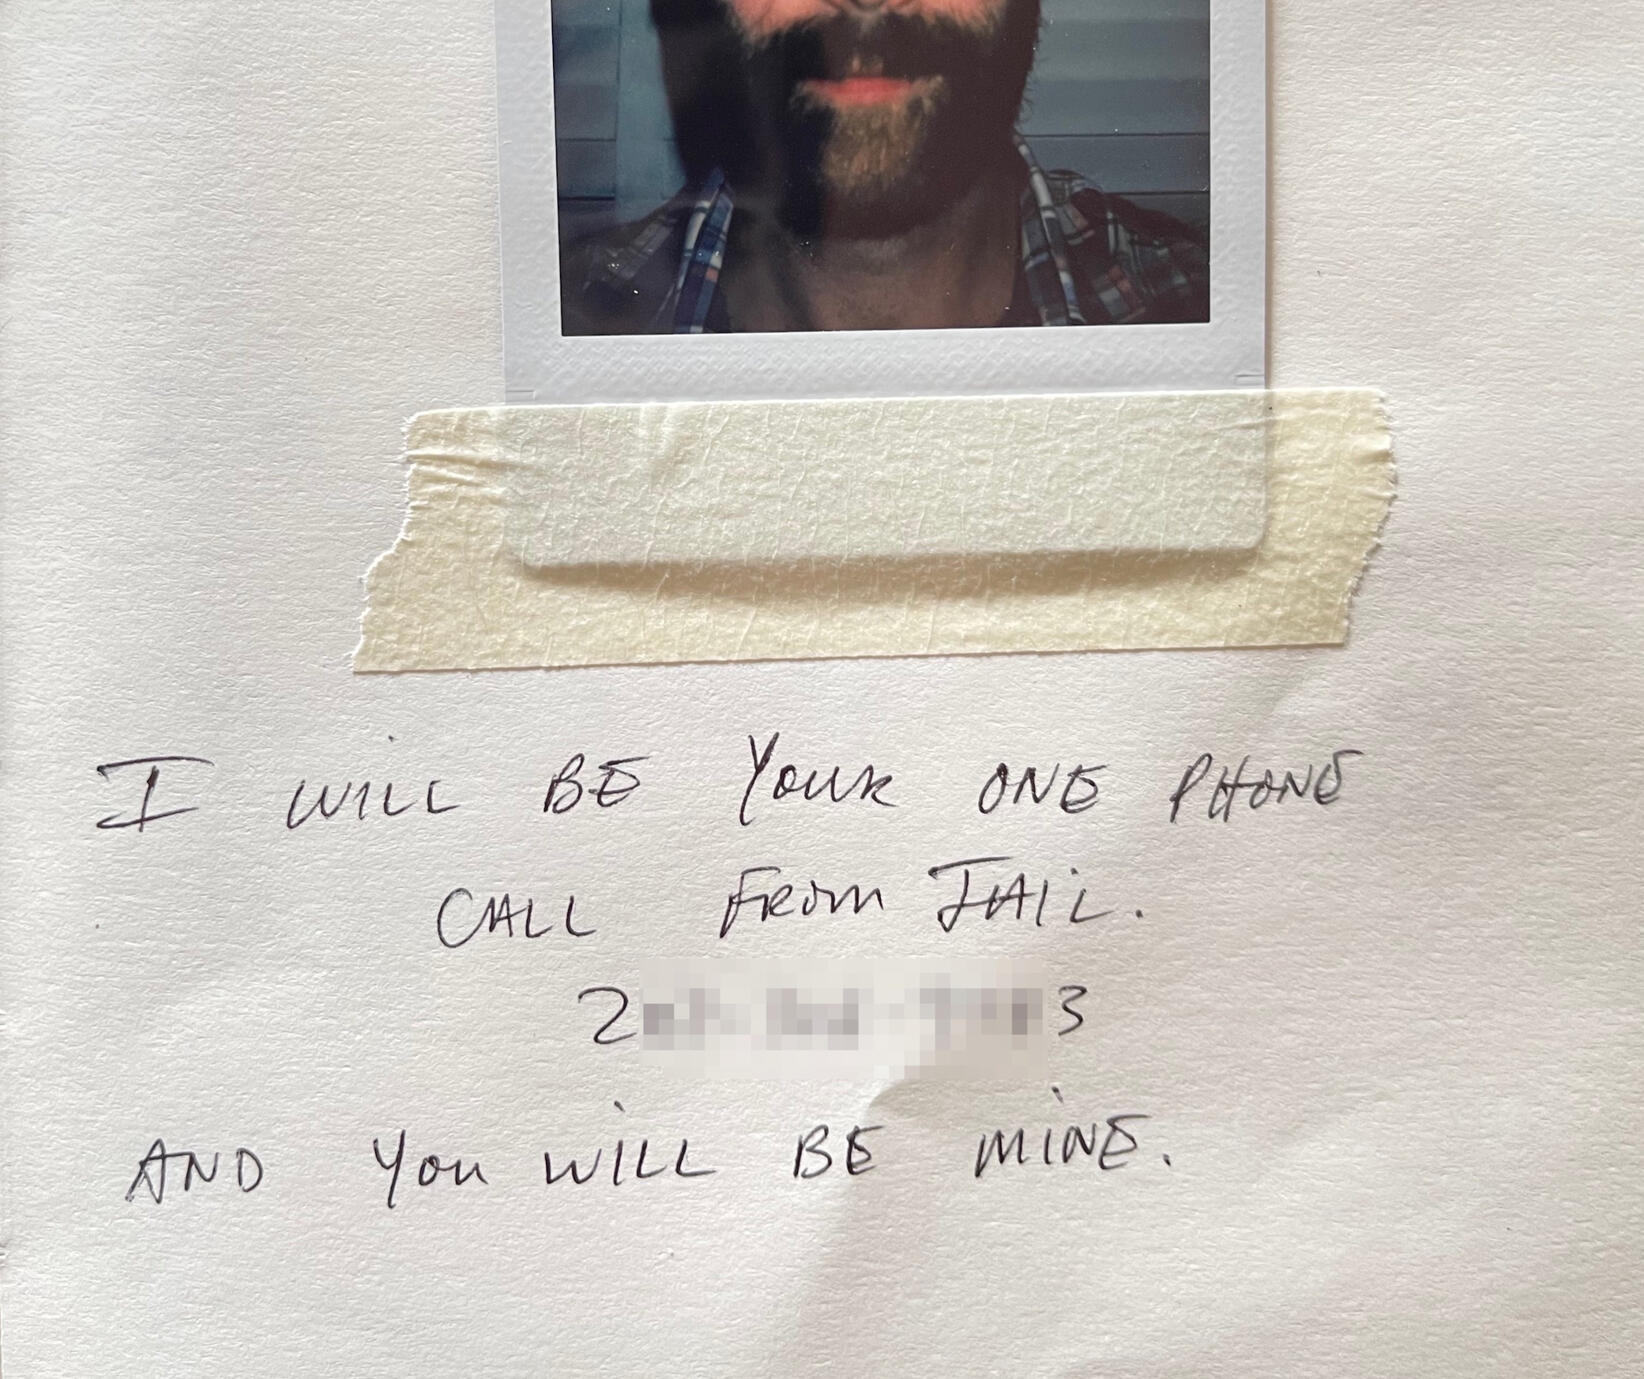 I WILL BE YOUR ONE PHONE
CALL FROM JAIL.
2 3
AND YOU WILL BE MINE.